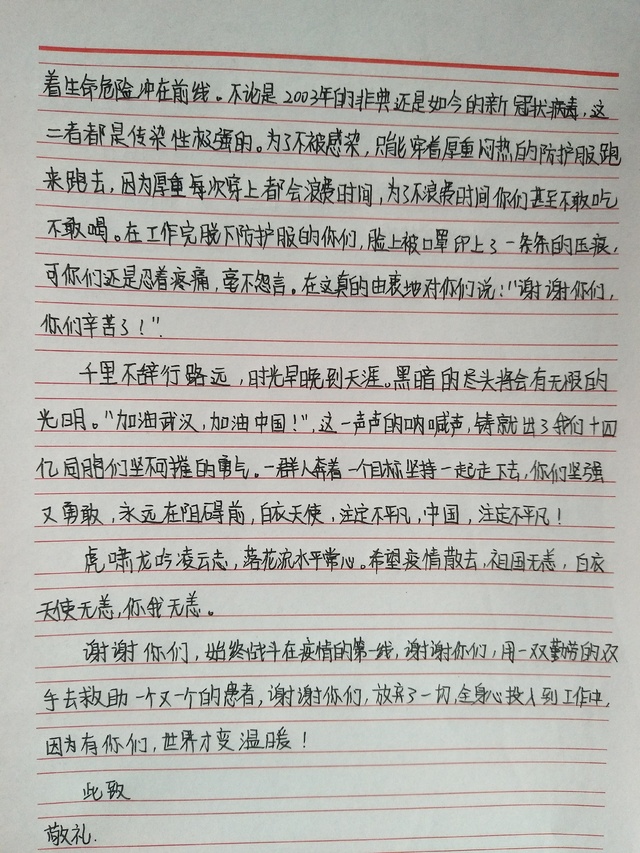 着生命危险冲在前线。不论是2003年的非典还是如今的新冠状病毒,这
二者都是传染性极强的。为了不被感染,只能穿着厚重闷热的防护服跑
来跑去,因为厚重每次穿上都会浪费时间,为了不浪费时间你们甚至不敢吃
不敢喝。在工作完脱下防护服的你们,脸上被口罩印上了一条条的压痕,
可你们还是忍着疼痛,毫不怨言。在这真的由衷地对你们说:"谢谢你们,
你们辛苦了!".
千里不辞行路远,时光早晚到天涯。黑暗的尽头将会有无限的
光明。"加油武汉,加油中国!",这一声声的呐喊声,铸就出了我们十四
亿同胞们坚不可摧的勇气。一群人奔着一个目标坚持一起走下去,你们坚强
又勇敢,永远在阻碍前,白衣天使,注定不平凡,中国,注定不平凡!
虎啸龙吟凌云志,落花流水平常心。希望疫情散去,祖国无恙,白衣
天使无恙,你我无恙。
谢谢你们,始终战斗在疫情的第一线,谢谢你们,用一双勤劳的双
手去救助一个又一个的患者,谢谢你们,放弃了一切,全身心投入到工作中,
因为有你们,世界才变温暖!
此致
敬礼.